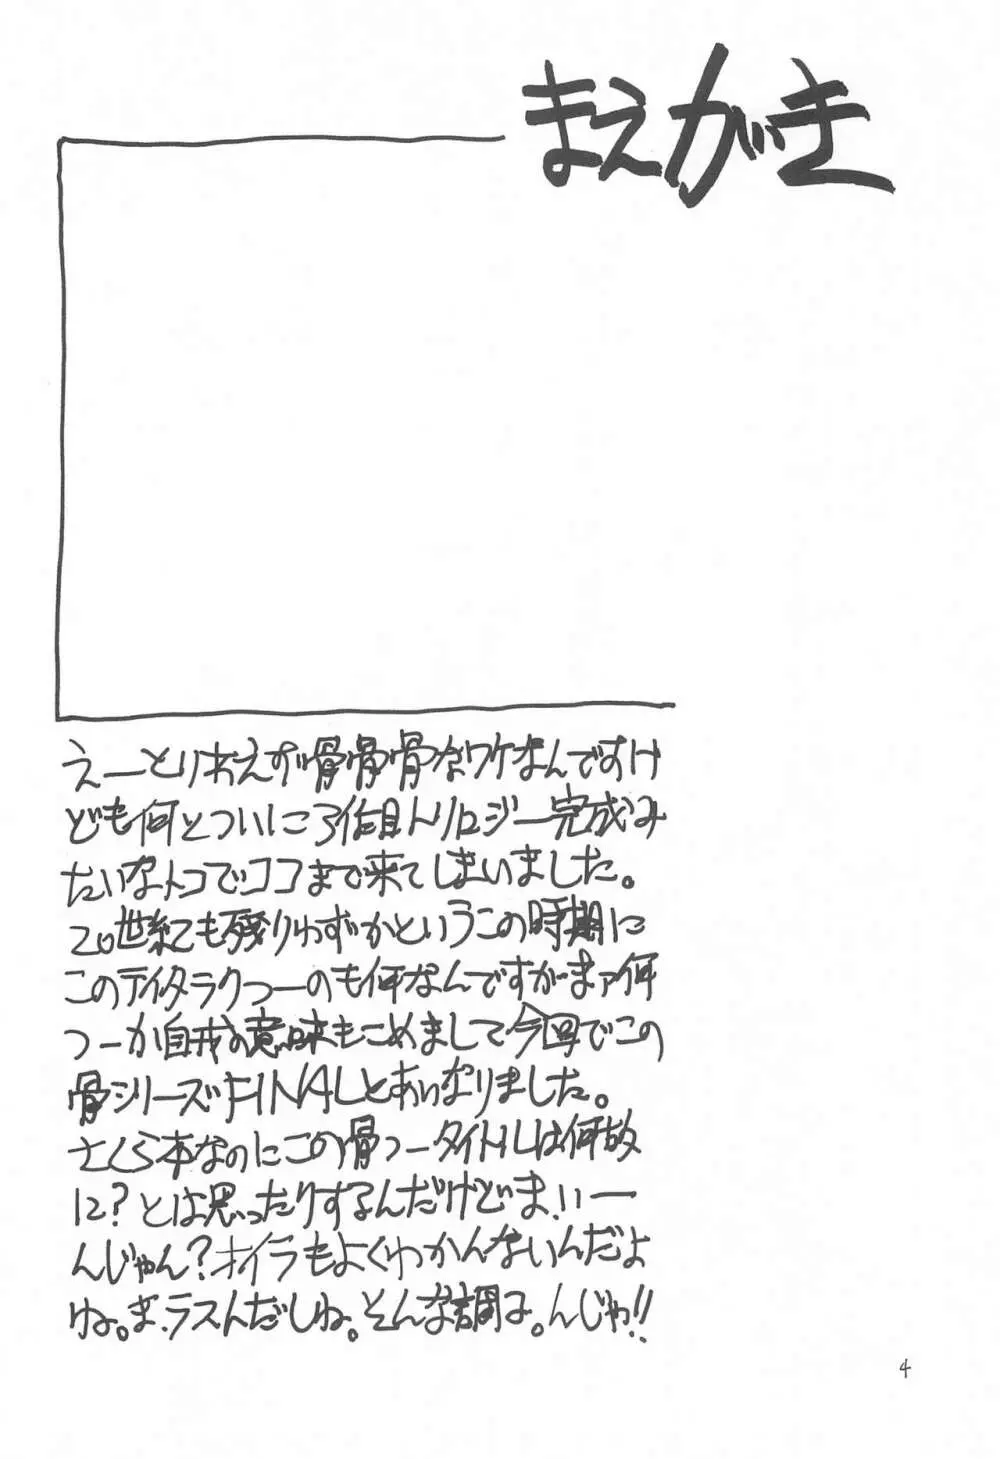 まえがき
えーとりあえず骨骨骨なワケなんですけ
ども何とついにこ3作目トリロジー完成み
たいなトコでココまで来てしまいました。
20世紀ても残りわずかというこの時期に
このテイタラクつーのも何なんですがまァ何
つーか自戒の意味もこめまして今回でこの
骨シリーズFINALとあいなりました。
さくら本なのにこの骨っータイトルは何故
に?とは思ったりするんだけどま、いー
んじゃん?オイラもよくわかんないんだよ
ね。ま、ラスんだしね。そんな調子。んじゃ!!
4